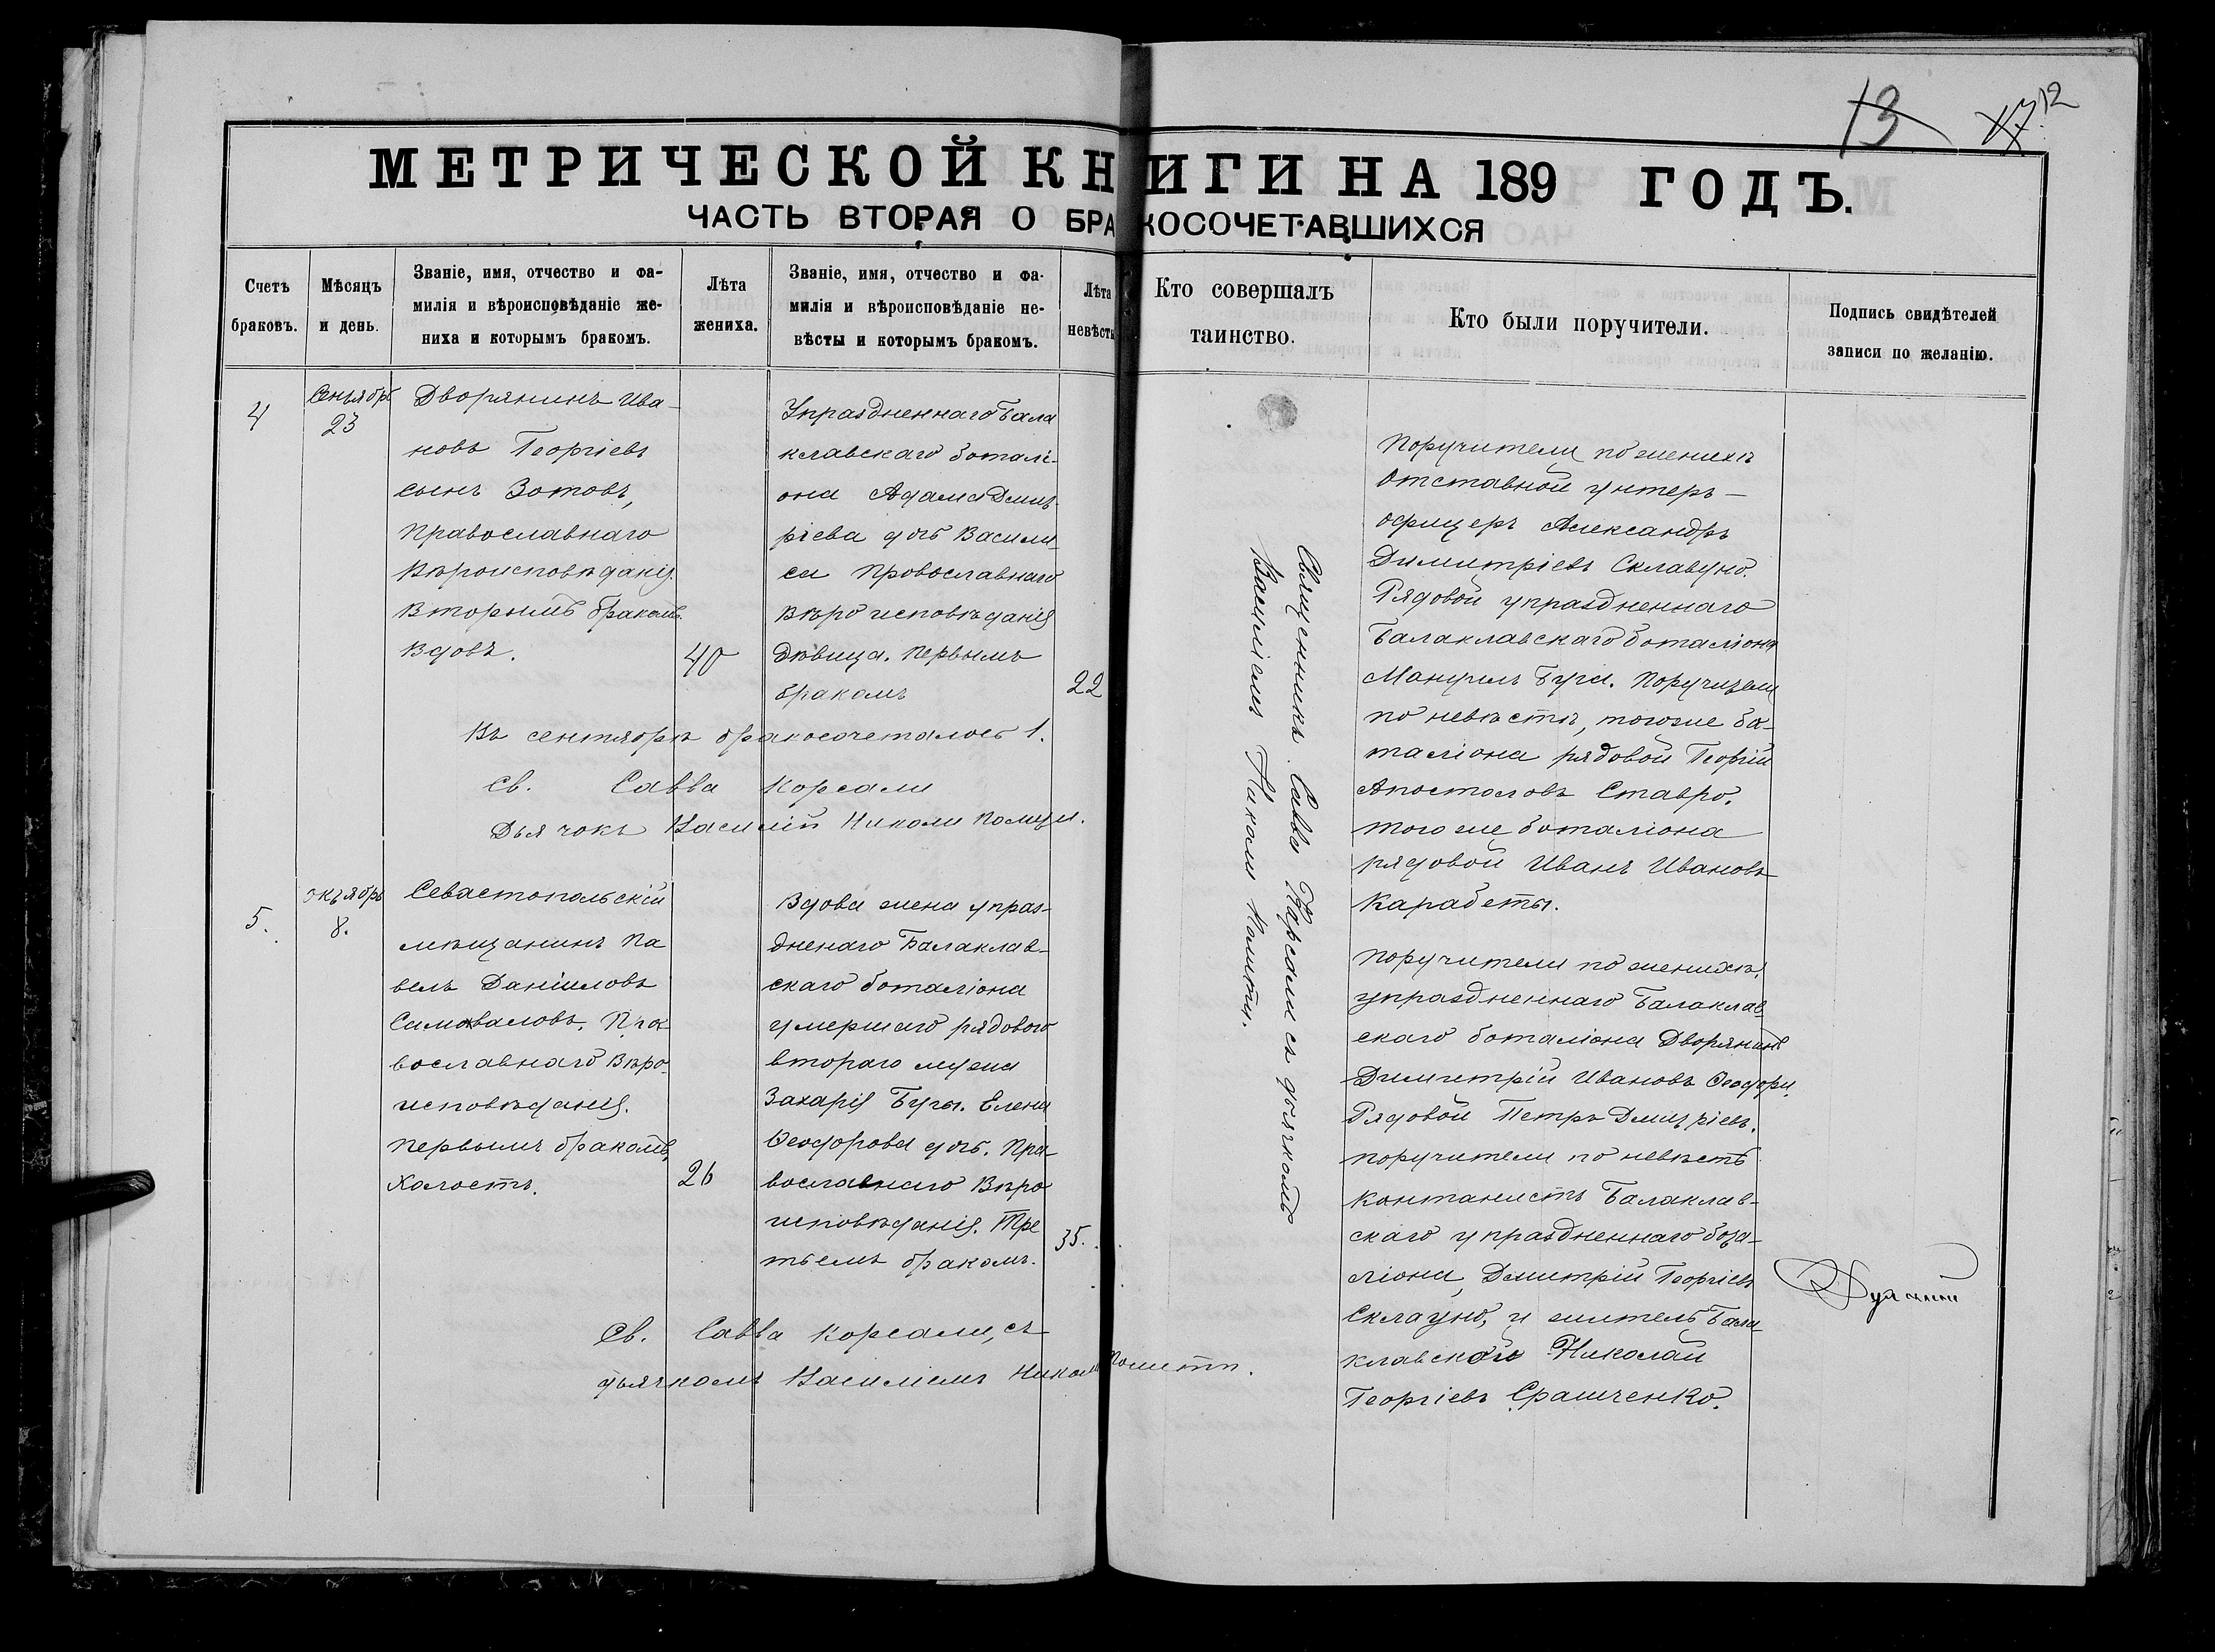 13 12
МЕТРИЧЕСКОЙ КНИГИ НА 189 ГОДЪ.
ЧАСТЬ ВТОРАЯ О БРАКОСОЧЕТАВШИХСЯ
Счетъ
браковъ.
Мѣсяцъ
и день.
Званіе, имя, отчество и фа-
милія и вѣроисповѣданіе же-
ниха и которымъ бракомъ.
Лѣта
жениха.
Званіе, имя, отчество и фа-
милія и вѣроисповѣданіе не-
вѣсты и которымъ бракомъ.
Лѣта
невѣсты
Кто совершалъ
таинство.
Кто были поручители.
Подпись свидѣтелей
записи по желанію.
4
Сентябрь
23
Дворянинъ Ива-
новъ Георгіевъ
сынъ Зотовъ,
православнаго
Вѣроисповѣданія.
Вторымъ бракомъ.
Вдовъ.
40
Упраздненнаго Бала
клавскаго боталі-
она Адама Дмит-
ріева дочь Васили-
са Провославнаго
Вѣроисповѣданія
Дѣвица. Первымъ
бракомъ
22
Въ сентябрѣ бракосочеталось 1.
Св. Савва Корсали
Дьячокъ Василій Николи Полити.
Священникъ Савва Корсали съ дьячкомъ
Василіемъ Николи Полити.
Поручители по женихѣ
Отставной унтеръ-
офицеръ Александръ
Димитріевъ Склавуно.
Рядовой упраздненнаго
Балаклавскаго боталіона
Мануилъ Буги. Поручители
по невѣстѣ, тогоже ба-
таліона рядовой Георгій
Апостоловъ Ставро.
того же боталіона
рядовой Иванъ Ивановъ
Карабеты.
5.
октябрь
8.
Севастопольскій
мѣщанинъ Па
велъ Даніиловъ
Самоваловъ. Пра-
вославнаго Вѣро-
исповѣданія.
Первымъ бракомъ,
Холостъ.
26
Вдова жена упраз-
дненаго Балаклав-
скаго боталіона
умершаго рядового
втораго мужа
Захарія Буги. Елена
Ѳеодорова дочь. Пра-
вославнаго Вѣро
исповѣданія. Тре
тьемъ бракомъ.
35.
Св. Савва Корсали, съ
дьячкомъ Василіемъ Николи Полити.
Поручители по женихѣ,
упраздненнаго Балаклав-
скаго боталіона Дворянинъ
Димитрій Ивановъ Ѳеодори.
Рядовой Петръ Дмитріевъ.
поручители по невѣстѣ
контанистъ Балаклав-
скаго упраздненнаго бота-
ліона, Дмитрій Георгіевъ
Склауно, и житель Бала-
клавской Николай
Георгіевъ Срамченко.